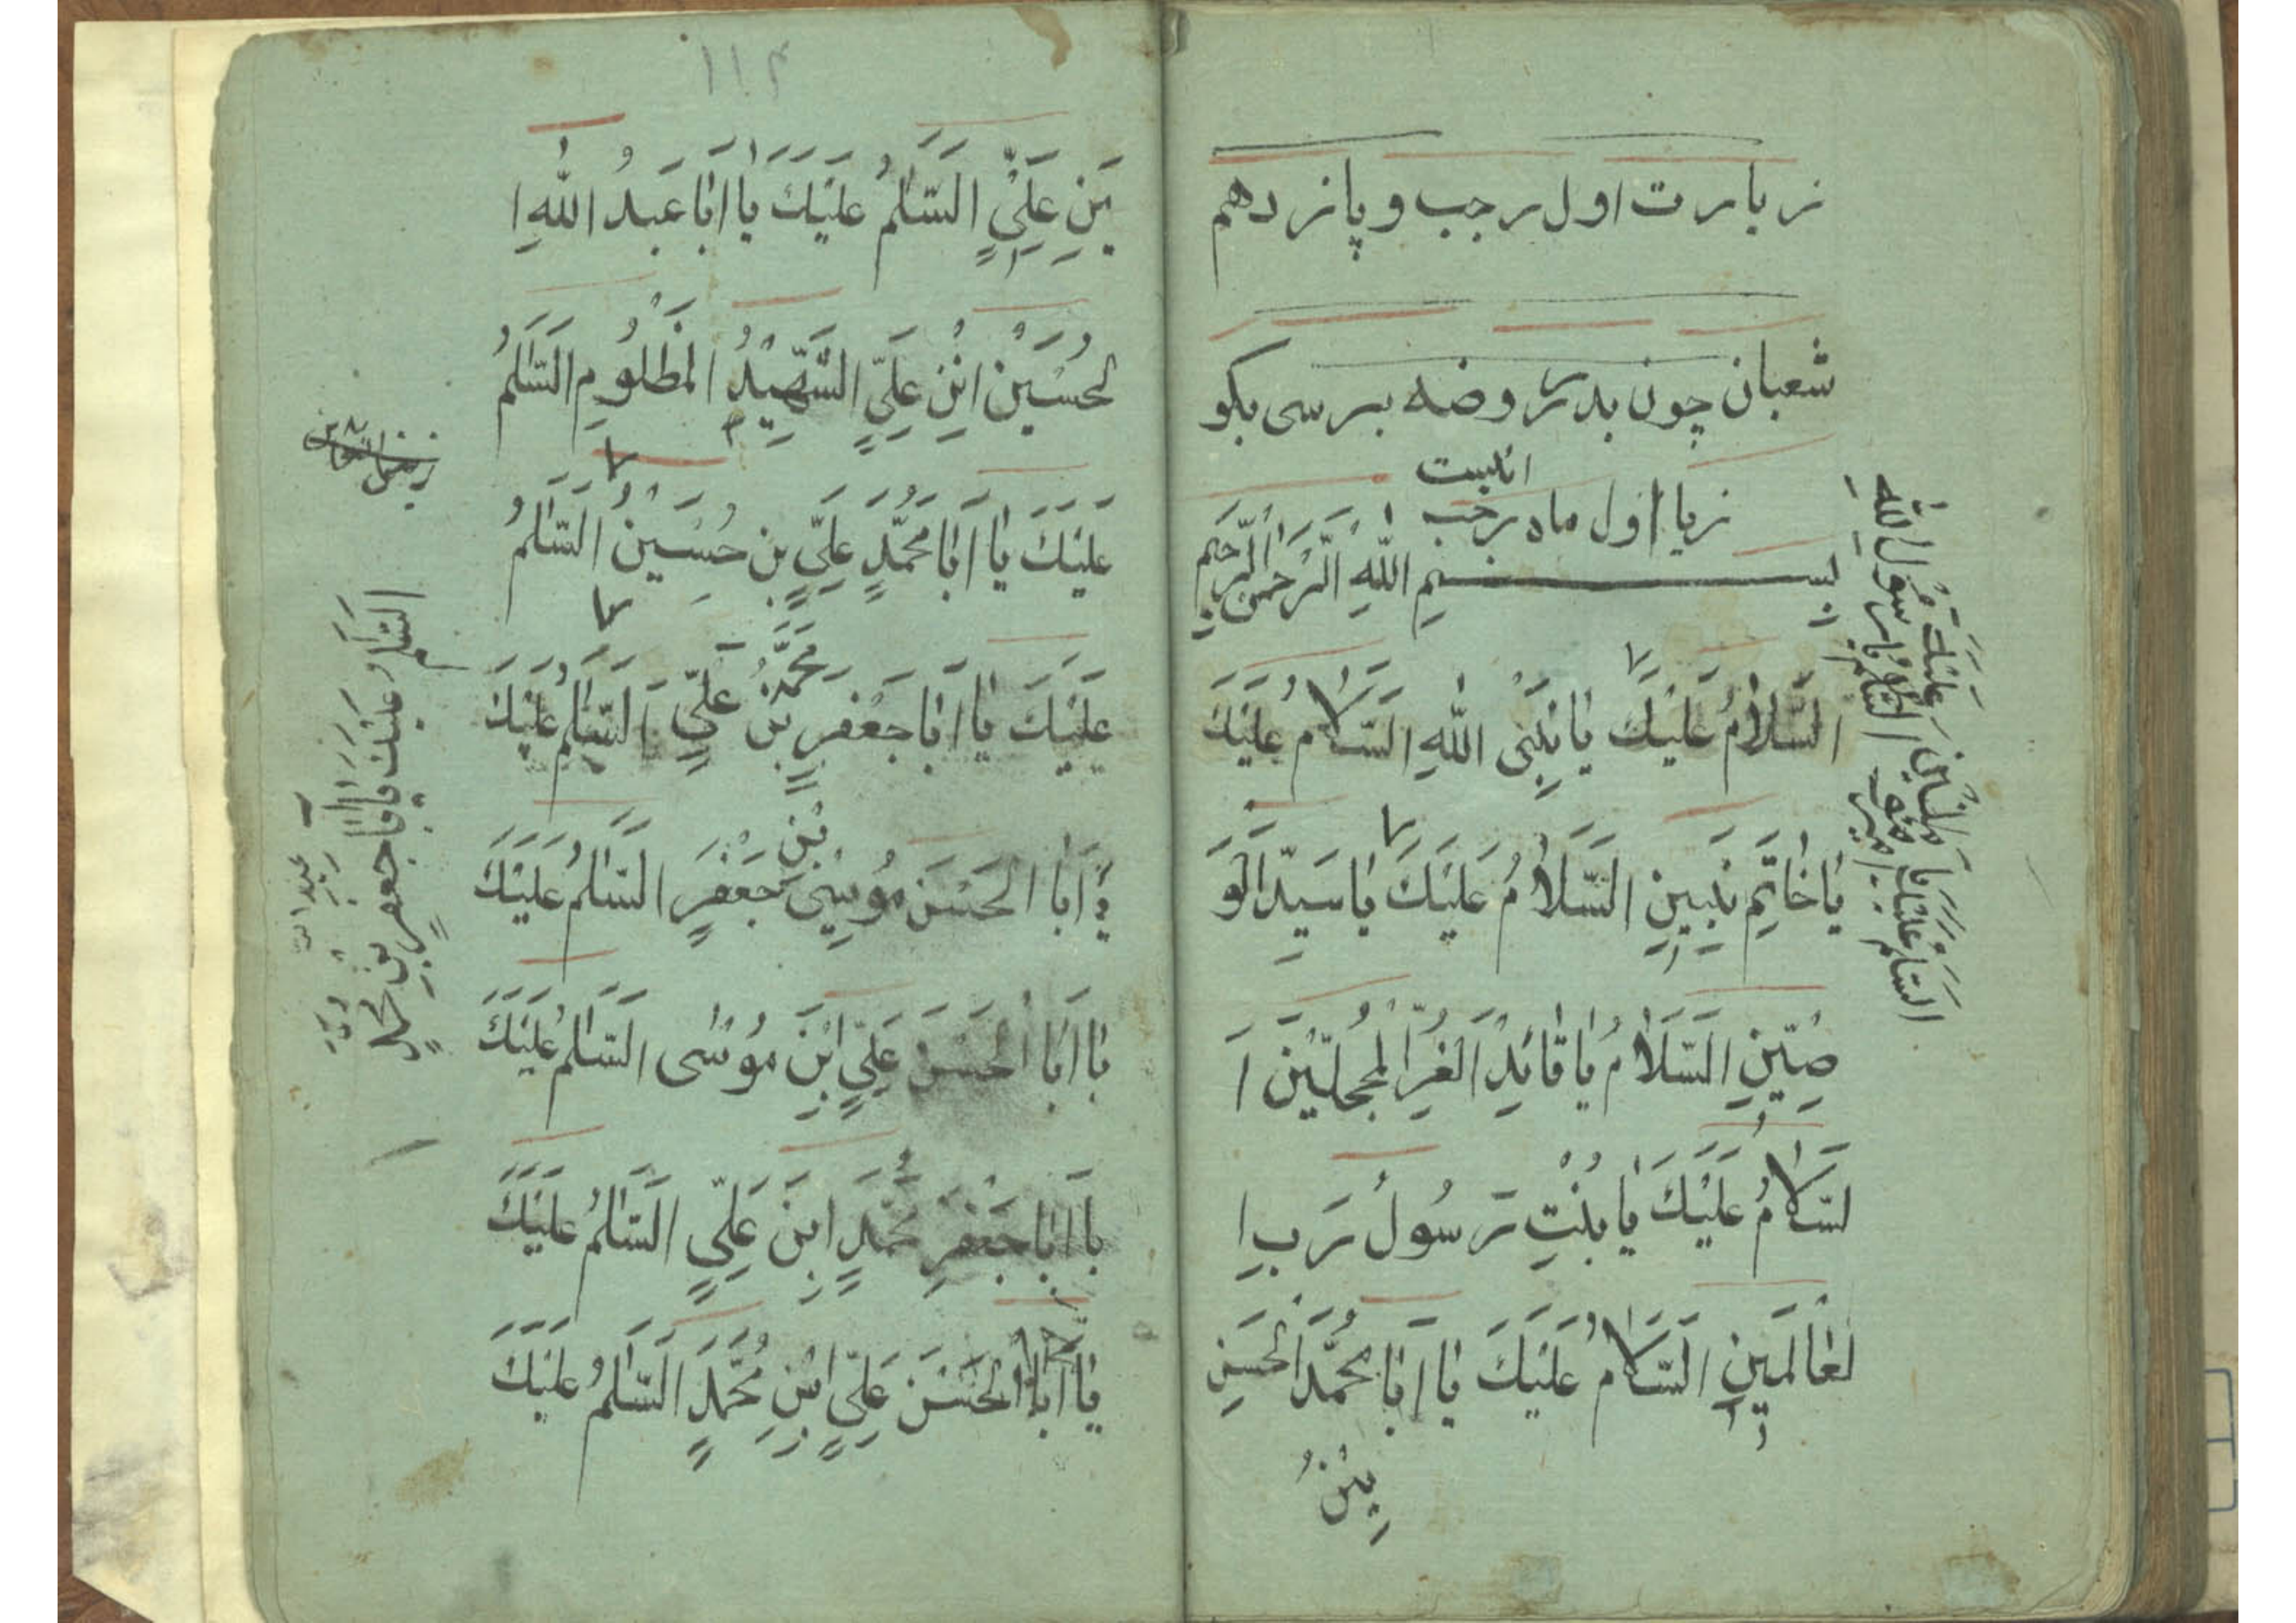 زیارت اول رجب و پانزدهم
شعبان چون بدر روضه برسی بکو
اینست
زیا اول ماه رجب
بسم اللهِ الرَّحمنِ الرَّحیمِ
السَّلامُ عَلَیْكَ یا نَبِیَّ اللهِ السَّلامُ عَلَیْكَ
یا خاتَمِ نَبِیینِ السَّلامُ عَلَیْكَ یا سَیِّدَ الْوَ
صِیّینِ السَّلامُ یا قائِدِ الْغُرِّ الْمُحَجَّلینَ ا
لسَّلامُ عَلَیْكَ یا بِنْتِ رَسُولُ رَبِ ا
لعالَمینِ السَّلامُ عَلَیْكَ یا اَبا مُحَمَّدَ الحَسَنِ
بِنْ
السلام علیك یا رسول اللهِ
السلام علیك یا امیر
۱۱۴
بَنِ عَلِیٍّ السَّلمُ عَلَیْكَ یا اَبا عَبدُ اللهِ ا
لحُسَیْنْ ابْنِ عَلِیٍّ الشَّهیدُ المَظْلُومِ السَّلَمُ
عَلَیْكَ یا اَبا مُحَمَّدٍ عَلِیِّ بن حُسَیْنْ السَّلمُ
عَلَیْكَ یا اَبا جَعْفَرٍ مُحَمَّدُ بْنِ عَلِیٍّ السَّلمُ عَلَیْكَ
یا اَبا الحَسَنَ مُوسِیَ بْنِ جَعْفَرٍ السَّلمُ عَلَیْكَ
یا اَبا الْحَسَنَ عَلِیٍّ ابْنِ مُوسٰی السَّلمُ عَلَیْكَ
یا اَبا جَعْفَرِ مُحَمَّدٍ ابنَ عَلِیٍّ السَّلمُ عَلَیْكَ
یا اَبا الْحَسَنَ عَلِیٍّ ابْنِ مُحَمَّدٍ السَّلَمُ عَلَیْكَ
السَّلم عَلَیْكَ یا اَبا جعفرٍ بن محمدٍ